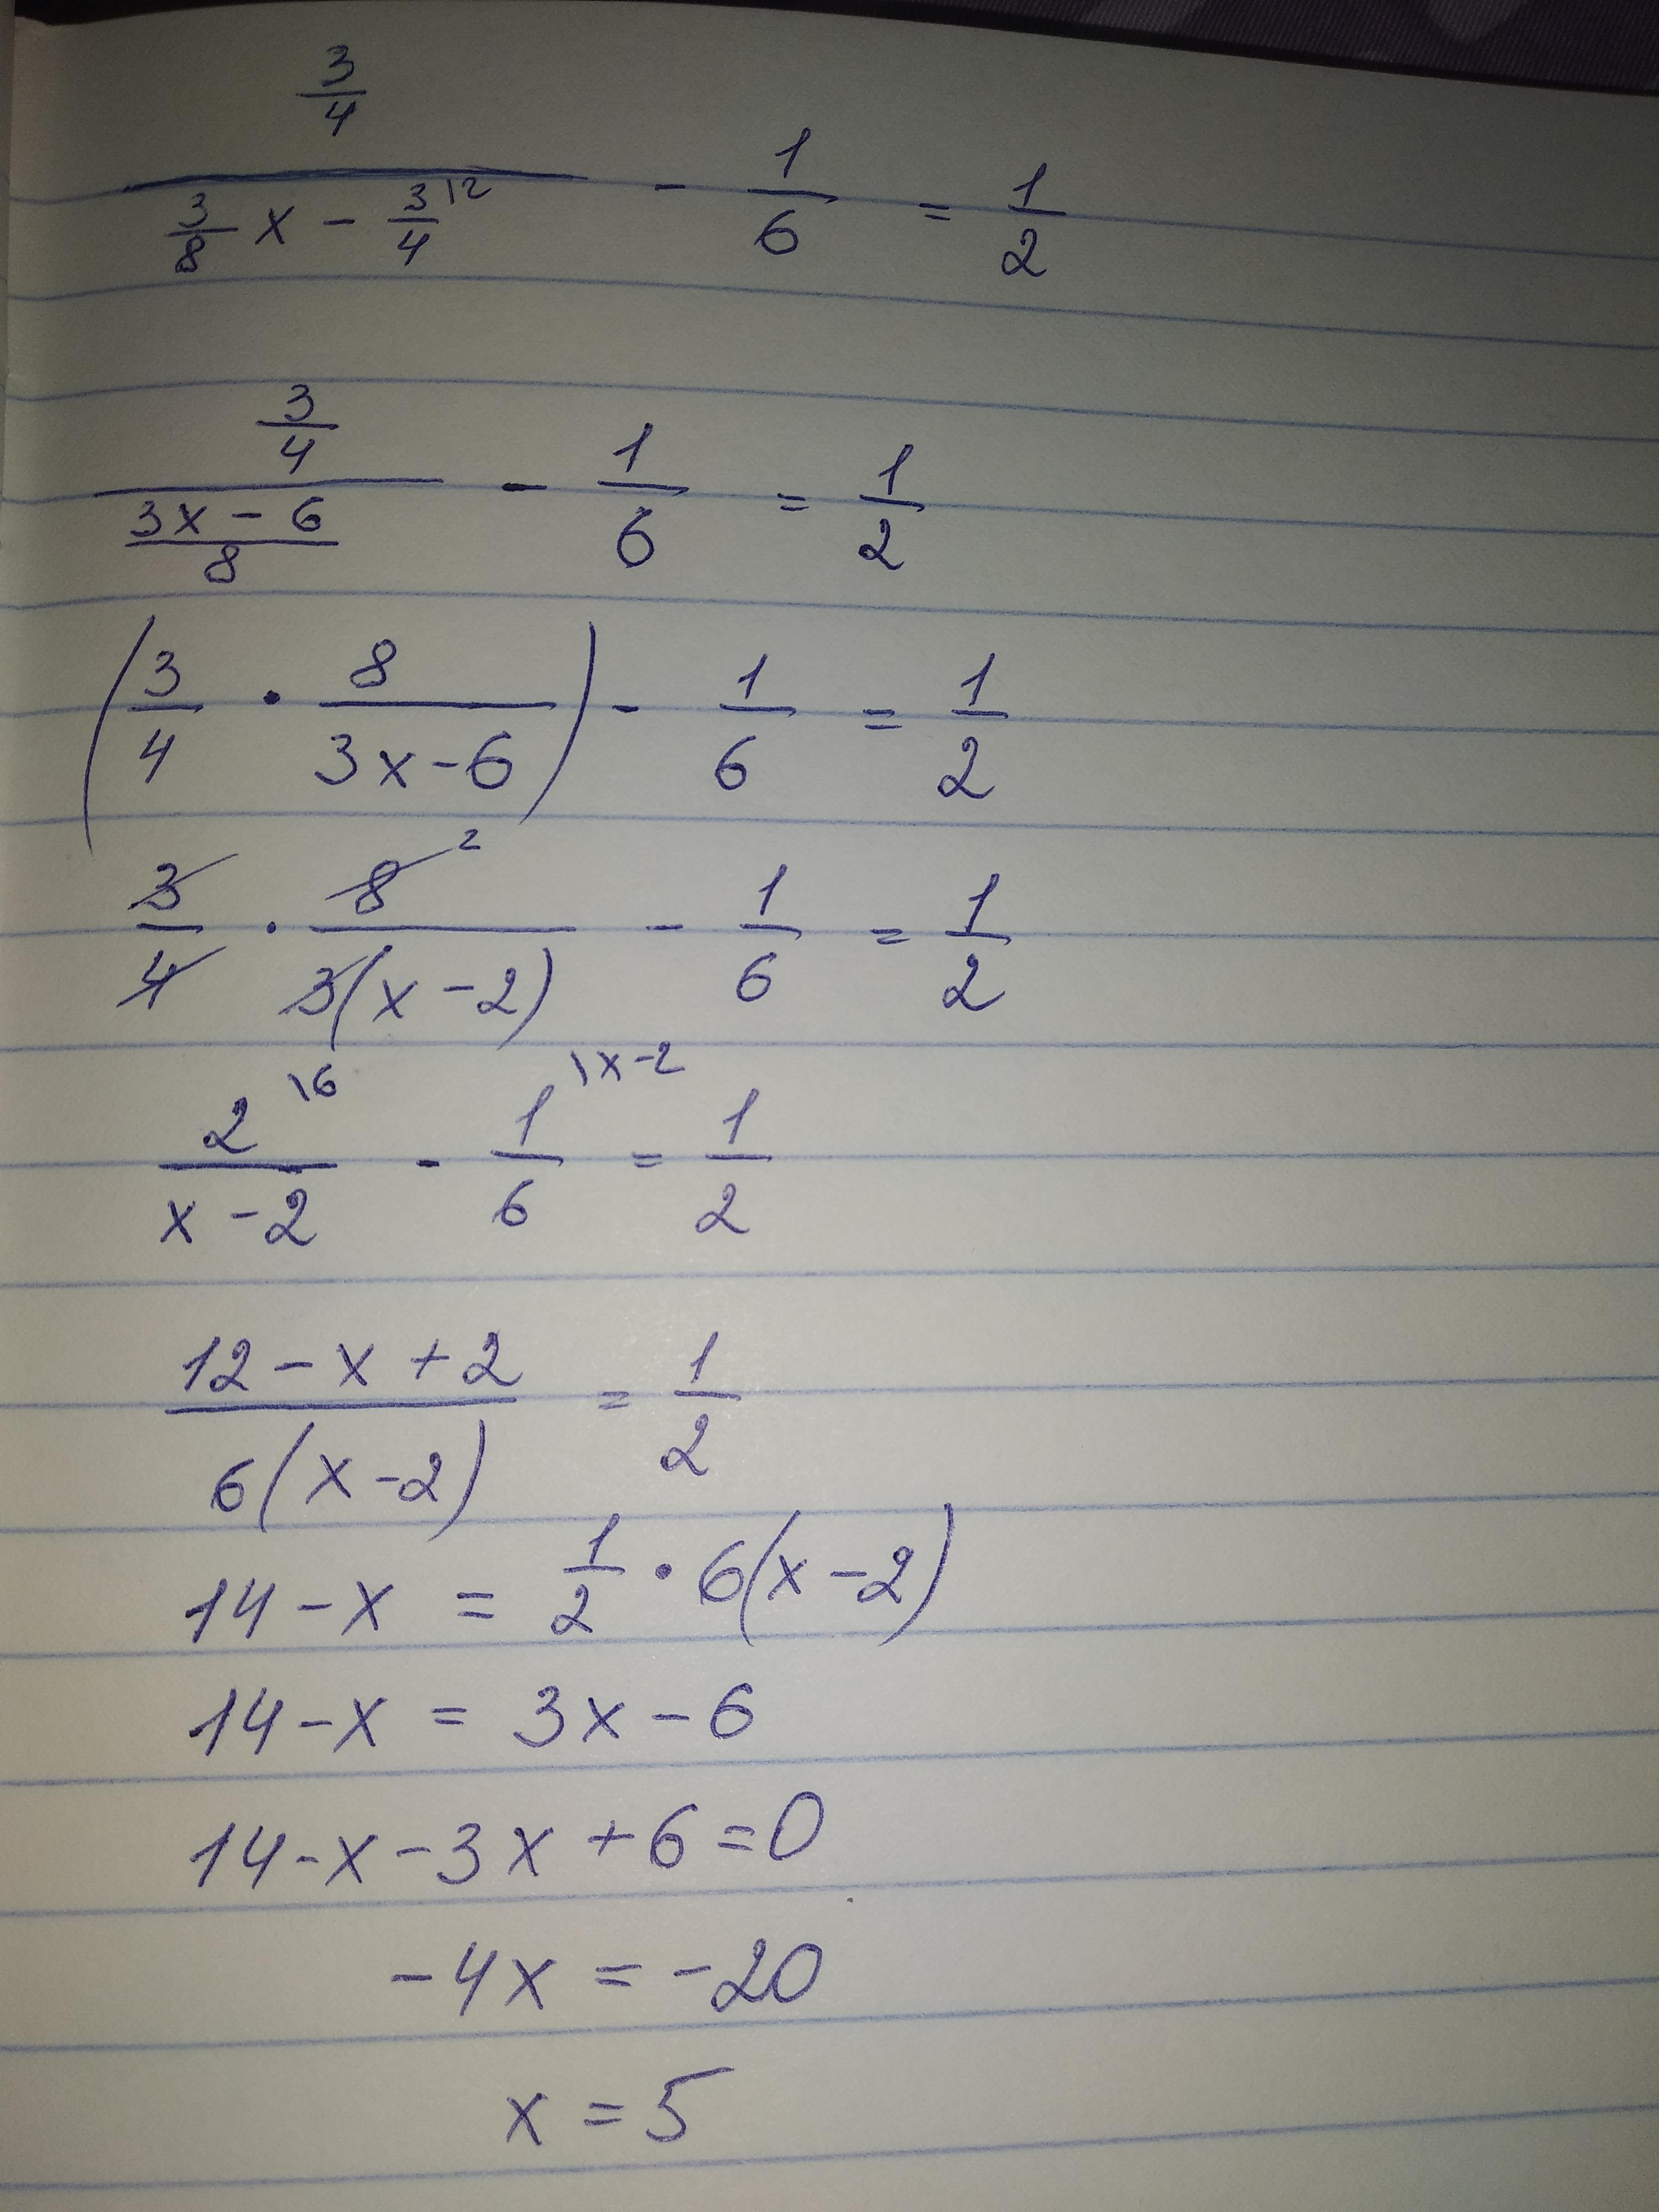 (3/4)/(3/8 x - 3/4 \2) - 1/6 = 1/2
(3/4)/((3x - 6)/8) - 1/6 = 1/2
(3/4 · 8/(3x-6)) - 1/6 = 1/2
3/4 · 8 2/(3(x-2)) - 1/6 = 1/2
2 \6/(x-2) - 1 \x-2/6 = 1/2
(12-x+2)/(6(x-2)) = 1/2
14-x = 1/2 · 6(x-2)
14-x = 3x-6
14-x-3x+6=0
-4x = -20
x = 5